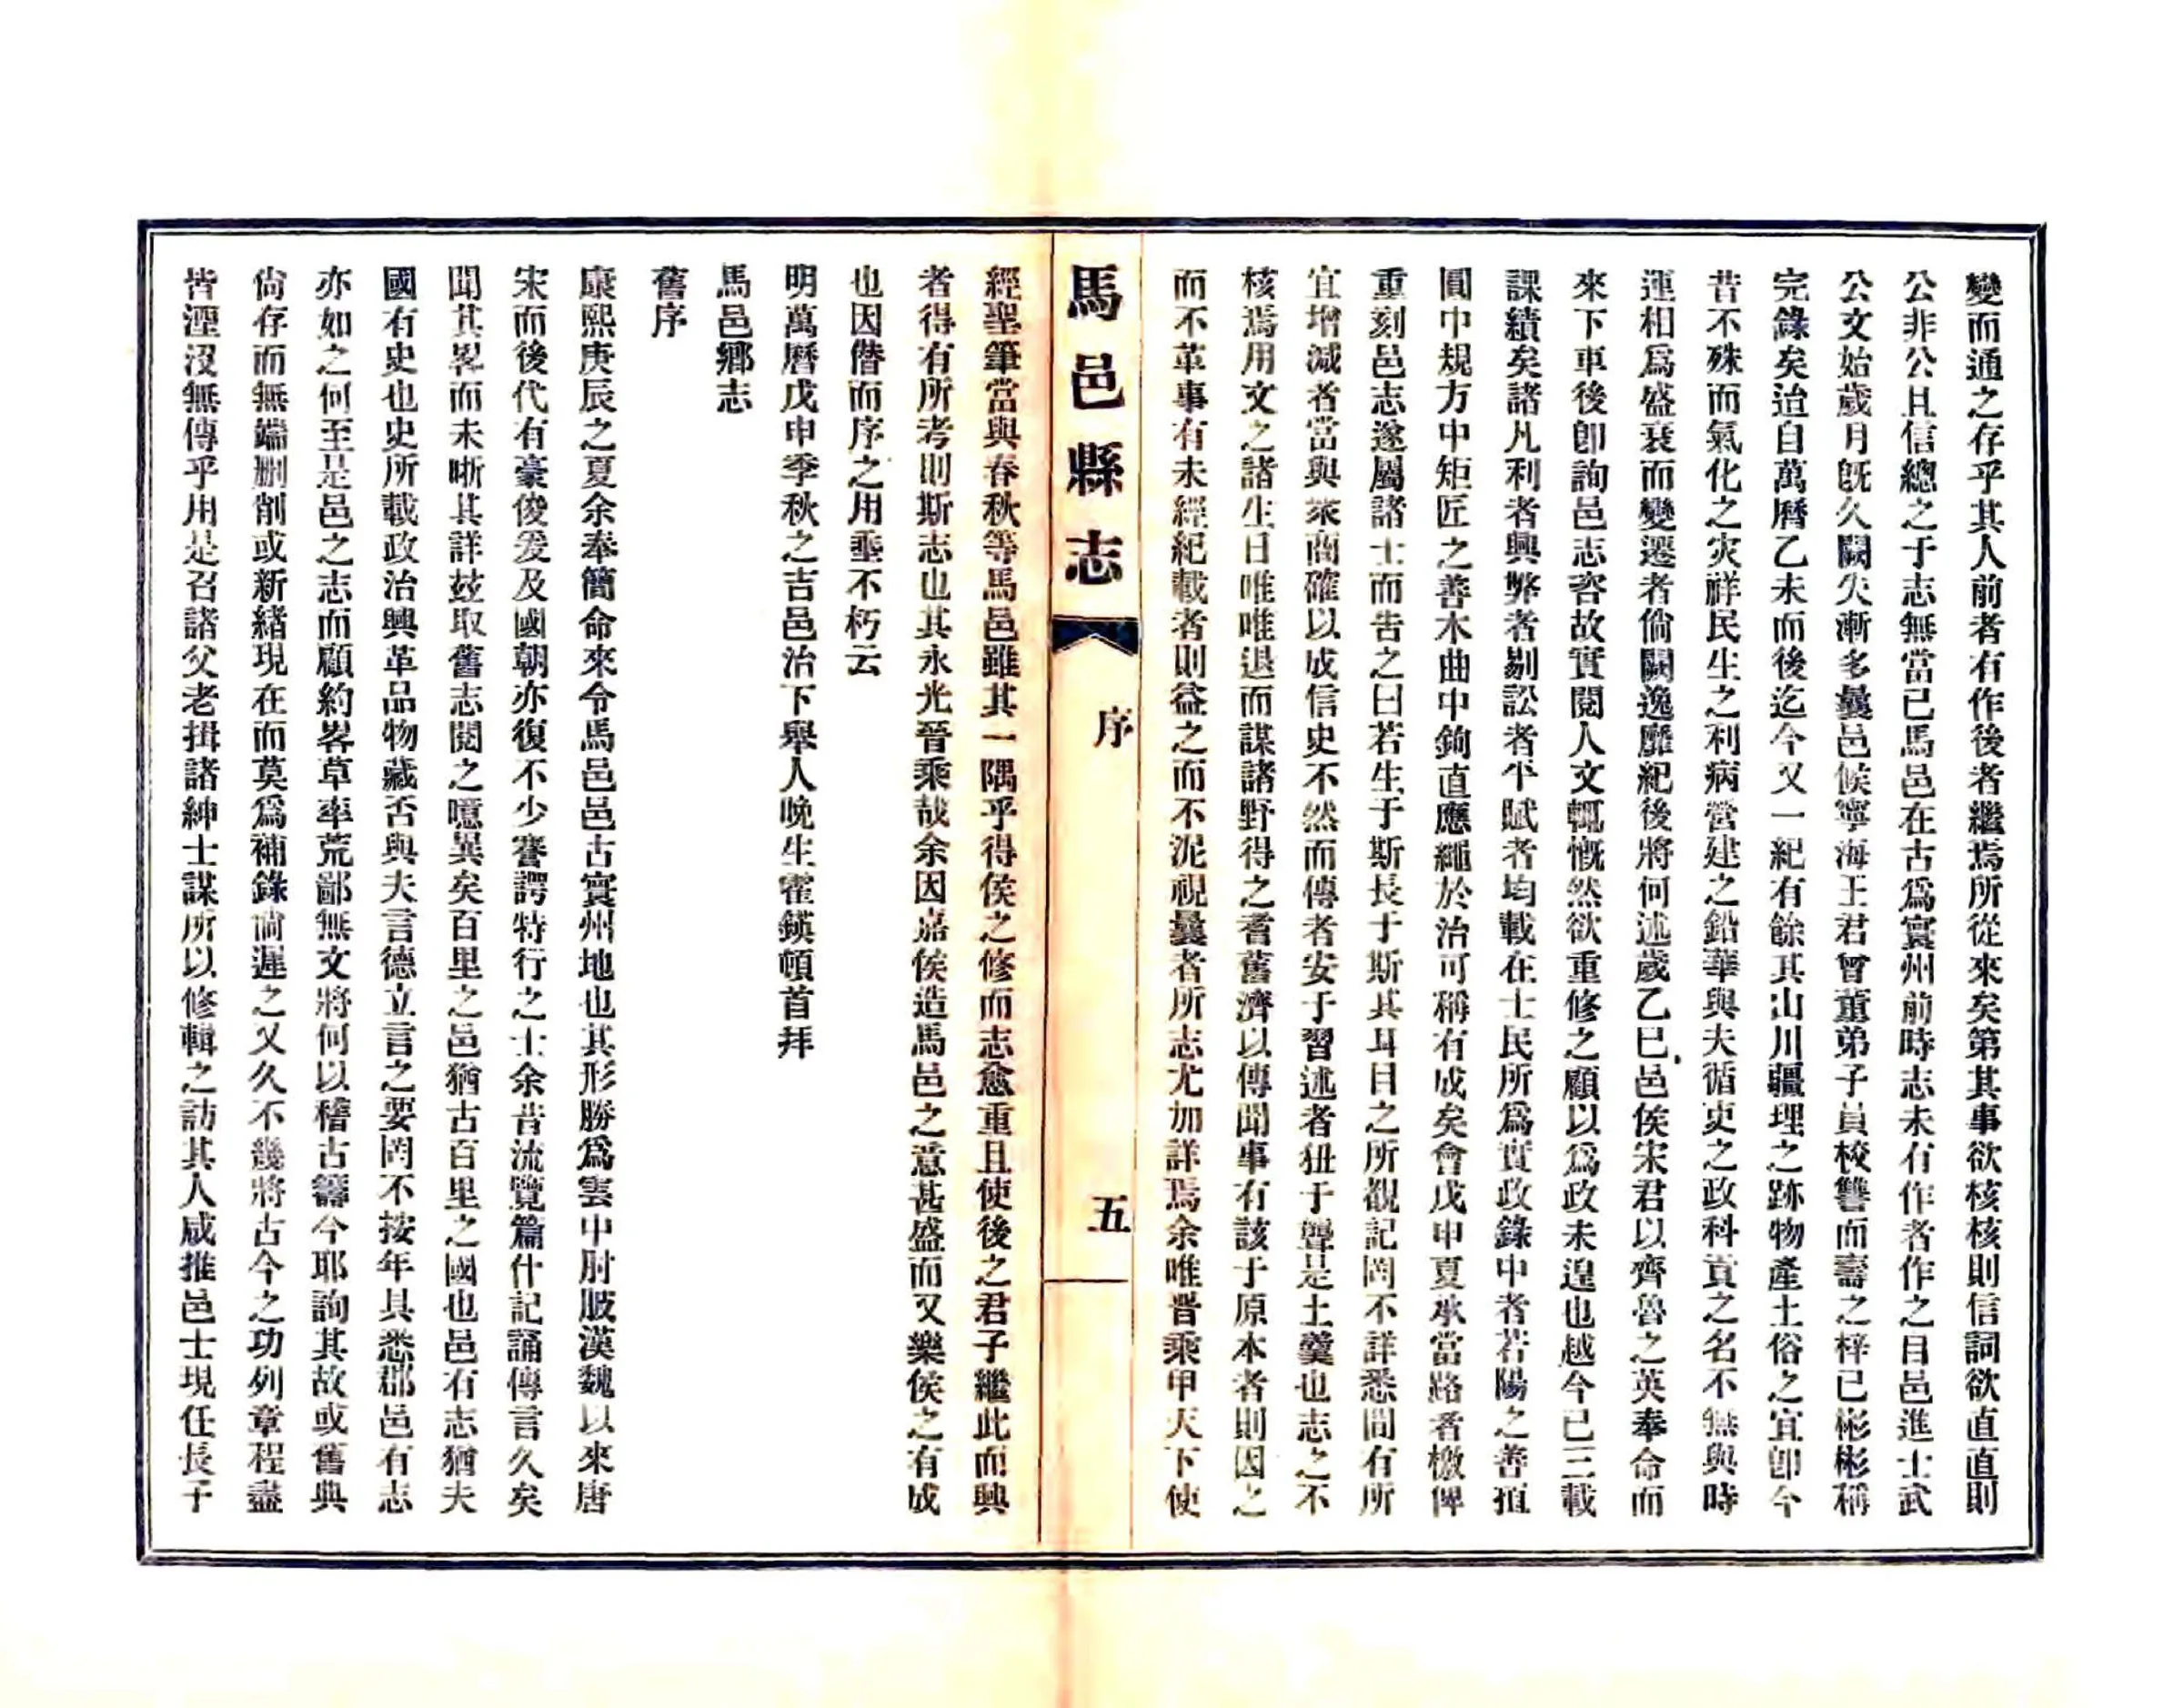 變而通之存乎其人前者有作後者繼焉所從來矣第其事欲核核則信詞欲直直則
公非公且信總之于志無當已馬邑在古爲寰州前時志未有作者作之自邑進士武
公文始歲月旣久闕失漸多曩邑侯寧海王君曾董弟子員校讐而壽之梓已彬彬稱
完錄矣迨自萬曆乙未而後迄今又一紀有餘其山川疆理之跡物產土俗之宜卽今
昔不殊而氣化之灾祥民生之利病營建之鉛華與夫循吏之政科貢之名不無與時
運相爲盛衰而變遷者倘闕逸靡紀後將何述歲乙巳邑侯宋君以齊魯之英奉命而
來下車後卽詢邑志咨故實閱人文輒慨然欲重修之顧以爲政未遑也越今已三載
課績矣諸凡利者興弊者剔訟者平賦者均載在士民所爲實政錄中者若陽之善
圓中規方中矩匠之善木曲中鉤直應繩於治可稱有成矣會戊申夏承當路者檄俾
重刻邑志遂屬諸士而告之曰若生于斯長于斯其耳目之所覩記罔不詳悉間有所
宜增减者當與衆商確以成信史不然而傳者安于習述者狃于聾是土羹也志之不
核焉用文之諸生日唯唯退而謀諸野得之耆舊濟以傳聞事有該于原本者則因之
而不革事有未經紀載者則益之而不泥視曩者所志尤加詳焉余唯晋乘甲天下使
馬邑縣志
序
五
經聖筆當與春秋等馬邑雖其一隅乎得侯之修而志愈重且使後之君子繼此而興
者得有所考則斯志也其永光晉乘哉余因嘉侯造馬邑之意甚盛而又樂侯之有成
也因僭而序之用垂不朽云
明萬曆戊申季秋之吉邑治下舉人晚生霍鍈頓首拜
馬邑鄉志
舊序
康熙庚辰之夏余奉簡命來令馬邑邑古寰州地也其形勝爲雲中肘腋漢魏以來唐
宋而後代有豪俊爰及國朝亦復不少謇諤特行之士余昔流覽篇什記誦傳言久矣
聞其畧而未晰其詳玆取舊志閱之噫異矣百里之邑猶古百里之國也邑有志猶夫
國有史也史所載政治興革品物藏否與夫言德立言之要罔不按年具悉郡邑有志
亦如之何至是邑之志而顧約畧草率荒鄙無文將何以稽古籌今耶詢其故或舊典
尙存而無端删削或新緒現在而莫爲補錄倘遲之又久不幾將古今之功列章程盡
皆湮沒無傳乎用是召諸父老揖諸紳士謀所以修輯之訪其人咸推邑士現任長子